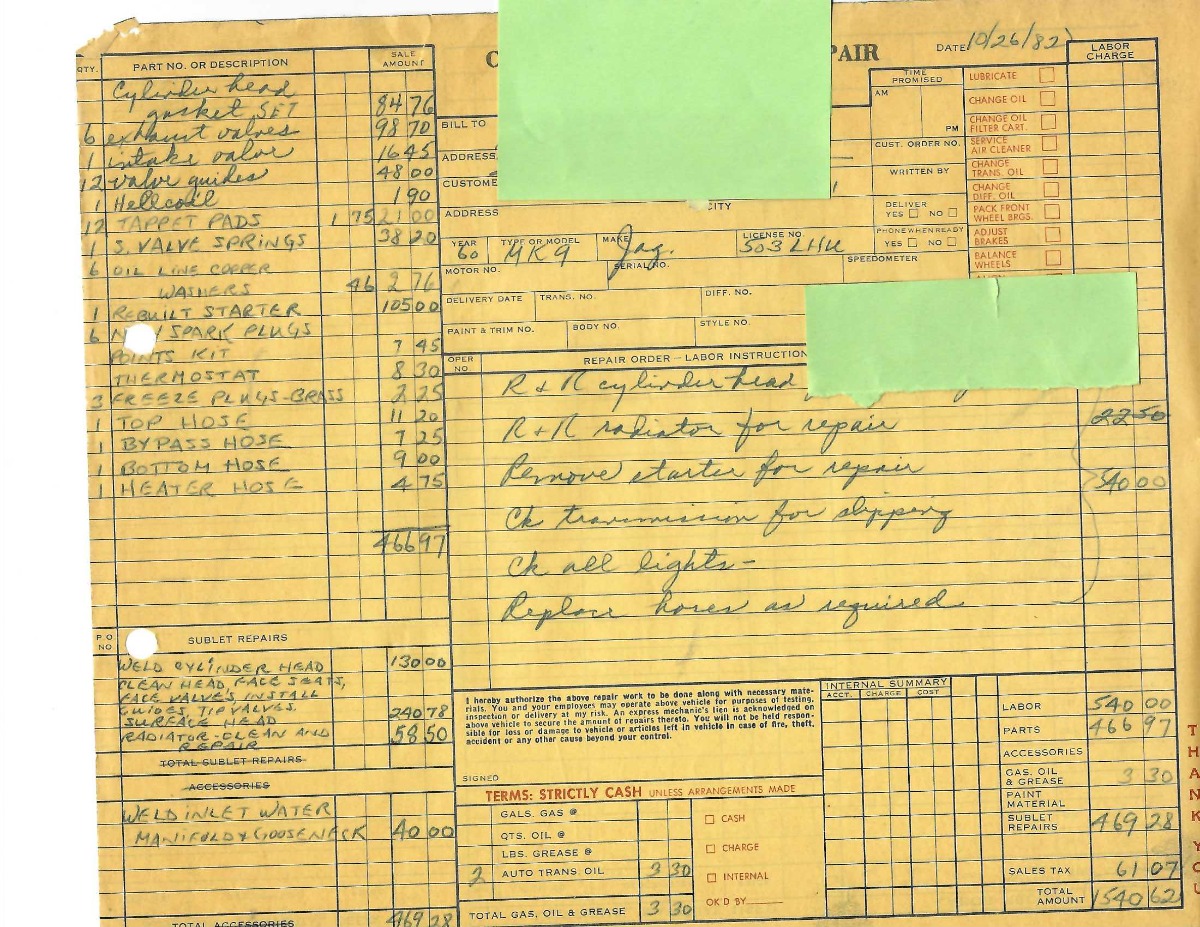 QTY. PART NO. OR DESCRIPTION SALE AMOUNT
Cylinder head
gasket SET 84 76
6 exhaust valves 98 70
1 intake valve 16 45
12 valve guides 48 00
1 Helicoil 1 90
12 TAPPET PADS 1 75 21 00
1 S. VALVE SPRINGS 38 20
6 OIL LINE COPPER
WASHERS 46 2 76
1 REBUILT STARTER 105 00
6 SPARK PLUGS
POINTS KIT 7 45
THERMOSTAT 8 30
3 FREEZE PLUGS-BRASS 2 25
1 TOP HOSE 11 20
1 BYPASS HOSE 7 25
1 BOTTOM HOSE 9 00
1 HEATER HOSE 4 75
466 97
P O NO SUBLET REPAIRS
WELD CYLINDER HEAD 130 00
CLEAN HEAD, FACE SEATS,
FACE VALVE'S INSTALL
GUIDES, TIP VALVES.
SURFACE HEAD 240 78
RADIATOR-CLEAN AND 58 50
REPAIR
TOTAL SUBLET REPAIRS
ACCESSORIES
WELD INLET WATER
MANIFOLD & GOOSENECK 40 00
TOTAL ACCESSORIES 469 28
C PAIR
DATE 10/26/82
BILL TO
ADDRESS
CUSTOME
ADDRESS CITY
YEAR 60 TYPE OR MODEL MK9 MAKE Jag. LICENSE NO. 503 LHU
MOTOR NO. SERIAL NO. SPEEDOMETER
DELIVERY DATE TRANS. NO. DIFF. NO.
PAINT & TRIM NO. BODY NO. STYLE NO.
TIME PROMISED
AM
PM
CUST. ORDER NO.
WRITTEN BY
DELIVER
YES NO
PHONE WHEN READY
YES NO
LUBRICATE
CHANGE OIL
CHANGE OIL FILTER CART.
SERVICE AIR CLEANER
CHANGE TRANS. OIL
CHANGE DIFF. OIL
PACK FRONT WHEEL BRGS.
ADJUST BRAKES
BALANCE WHEELS
LABOR CHARGE
OPER NO. REPAIR ORDER — LABOR INSTRUCTION
R & R cylinder head
R + R radiator for repair 22 50
Remove starter for repair
540 00
Ck transmission for slipping
Ck all lights -
Replace hoses as required
I hereby authorize the above repair work to be done along with necessary mate-
rials. You and your employees may operate above vehicle for purposes of testing,
inspection or delivery at my risk. An express mechanic's lien is acknowledged on
above vehicle to secure the amount of repairs thereto. You will not be held respon-
sible for loss or damage to vehicle or articles left in vehicle in case of fire, theft,
accident or any other cause beyond your control.
SIGNED
TERMS: STRICTLY CASH UNLESS ARRANGEMENTS MADE
GALS. GAS @
QTS. OIL @
LBS. GREASE @
2 AUTO TRANS OIL 3 30
TOTAL GAS, OIL & GREASE 3 30
CASH
CHARGE
INTERNAL
OK'D BY
INTERNAL SUMMARY
ACCT. CHARGE COST
LABOR 540 00
PARTS 466 97
ACCESSORIES
GAS, OIL & GREASE 3 30
PAINT MATERIAL
SUBLET REPAIRS 469 28
SALES TAX 61 07
TOTAL AMOUNT 1540 62
THANK YOU